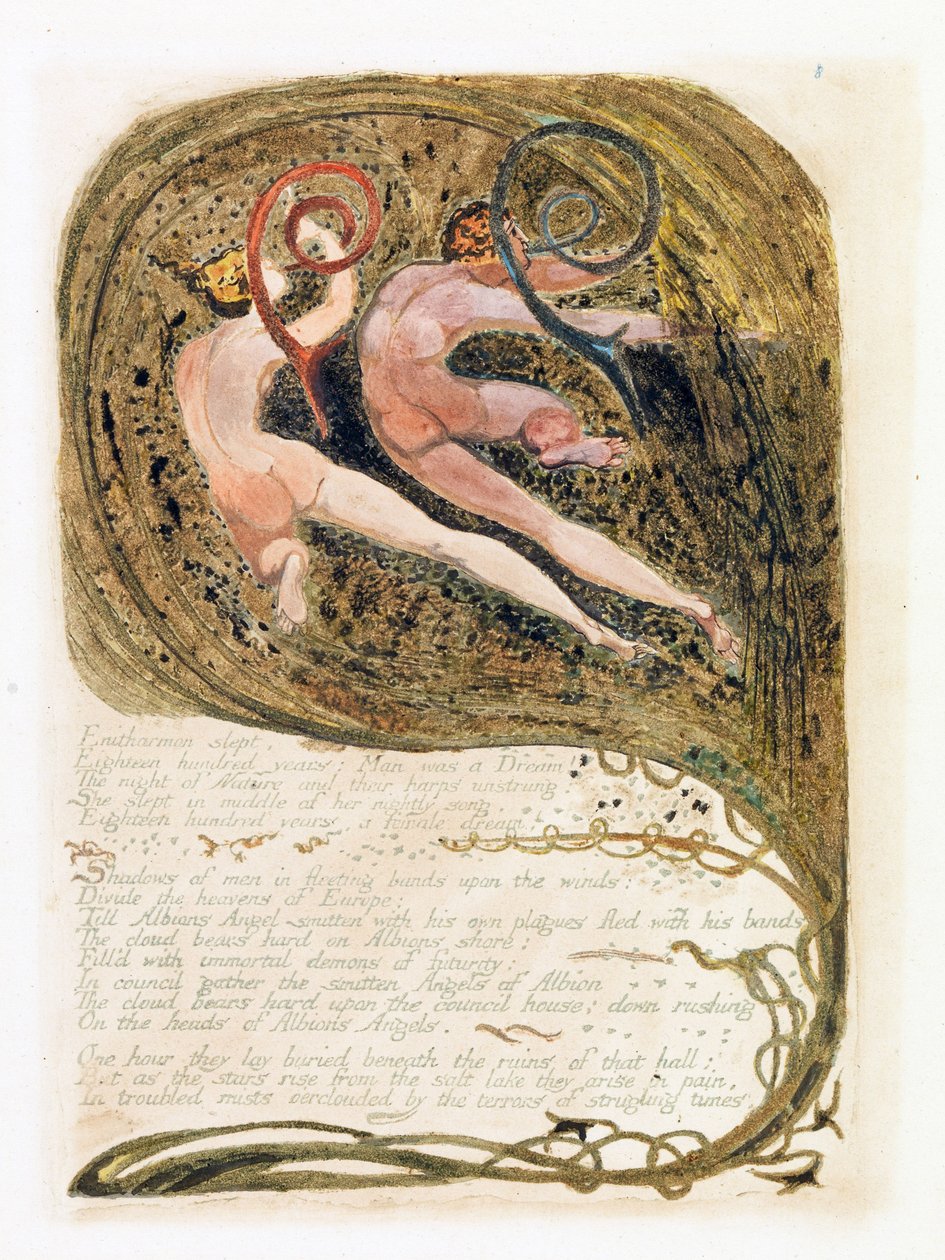 8
Enitharmon slept,
Eighteen hundred years: Man was a Dream!
The night of Nature and their harps unstrung:
She slept in middle of her nightly song,
Eighteen hundred years, a female dream!
Shadows of men in fleeting bands upon the winds:
Divide the heavens of Europe:
Till Albions Angel smitten with his own plagues fled with his bands
The cloud bears hard on Albions shore:
Fill'd with immortal demons of futurity:
In council gather the smitten Angels of Albion
The cloud bears hard upon the council house; down rushing
On the heads of Albions Angels.
One hour they lay buried beneath the ruins of that hall;
But as the stars rise from the salt lake they arise in pain,
In troubled mists oerclouded by the terrors of strugling times